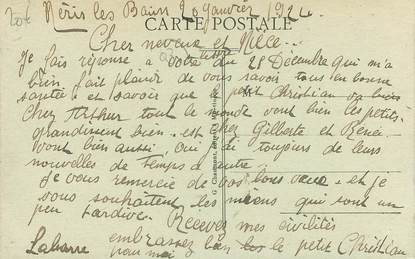 Néris les Bains 20 Janvier 1924
CARTE POSTALE
Cher neveux et Nièce
je fais réponse a votre lettre du 28 Décembre qui m'a
bien fait plaisir de vous savoir tous en bonne
santée et savoir que petit Christian va bien
chez Arthur tout le monde vont bien les petits
grandissent bien est chez Gilberte et René
vont bien aussi, oui ai toujours de leurs
nouvelles de temps a autre
je vous remercie de vos bons vœux et je
vous souhaitent les miens qui sont un
peu tardive. Recevez mes civilités
Labarre embrassez bien le petit Christian
pour moi